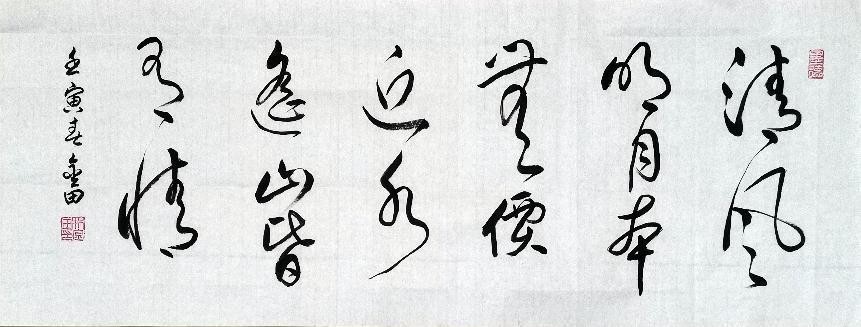 清風
明月本
無價
近水
遠山皆
有情
壬寅春金田